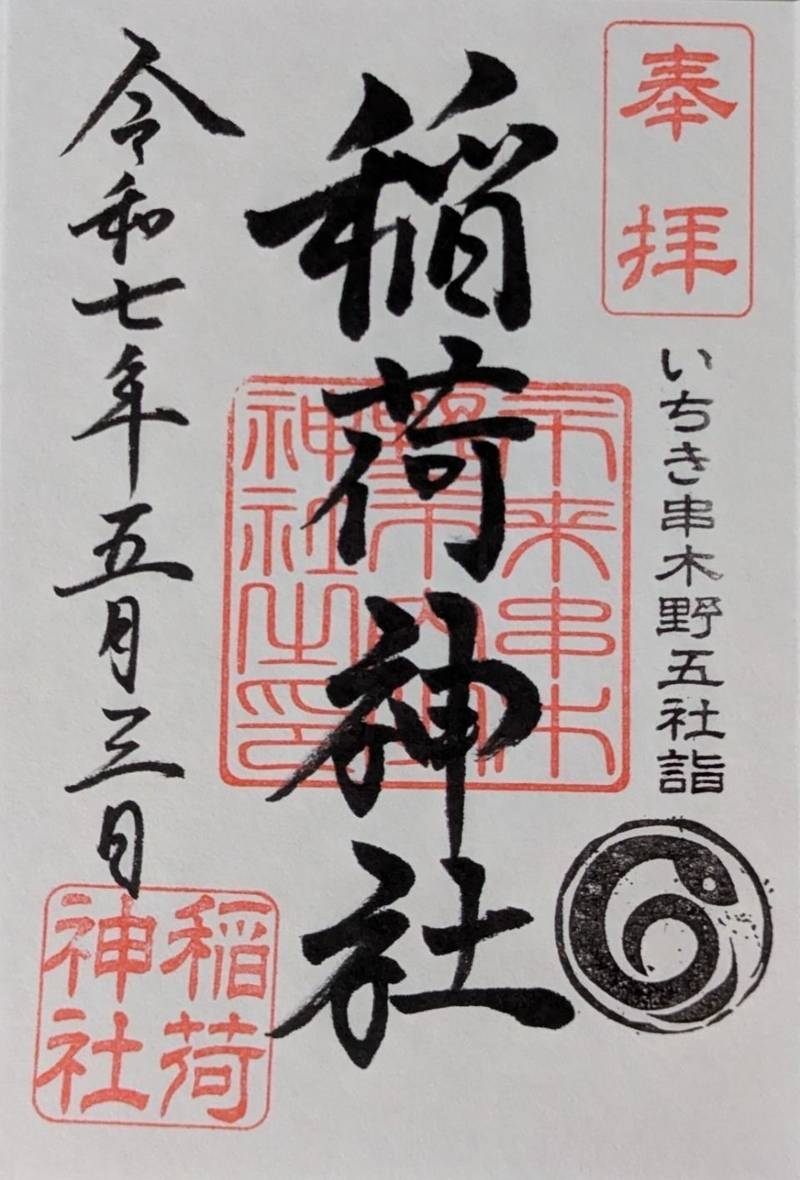 奉拝
いちき串木野五社詣
稲荷神社
令和七年五月三日
稲荷
神社
神社之印